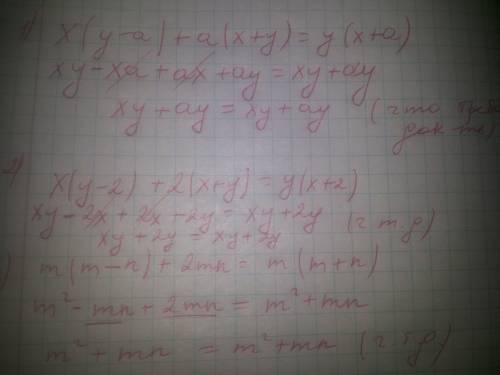 1) x(y-a)+a(x+y)=y(x+a)
xy-xa+ax+ay=xy+ay
xy+ay=xy+ay (что
док-ть)
2) x(y-2)+2(x+y)=y(x+2)
xy-2x+2x-2y=xy+2y
xy+2y=xy+2y (ч т.д)
) m(m-n)+2mn=m(m+n)
m²-mn+2mn=m²+mn
m²+mn=m²+mn (ч.т.д)